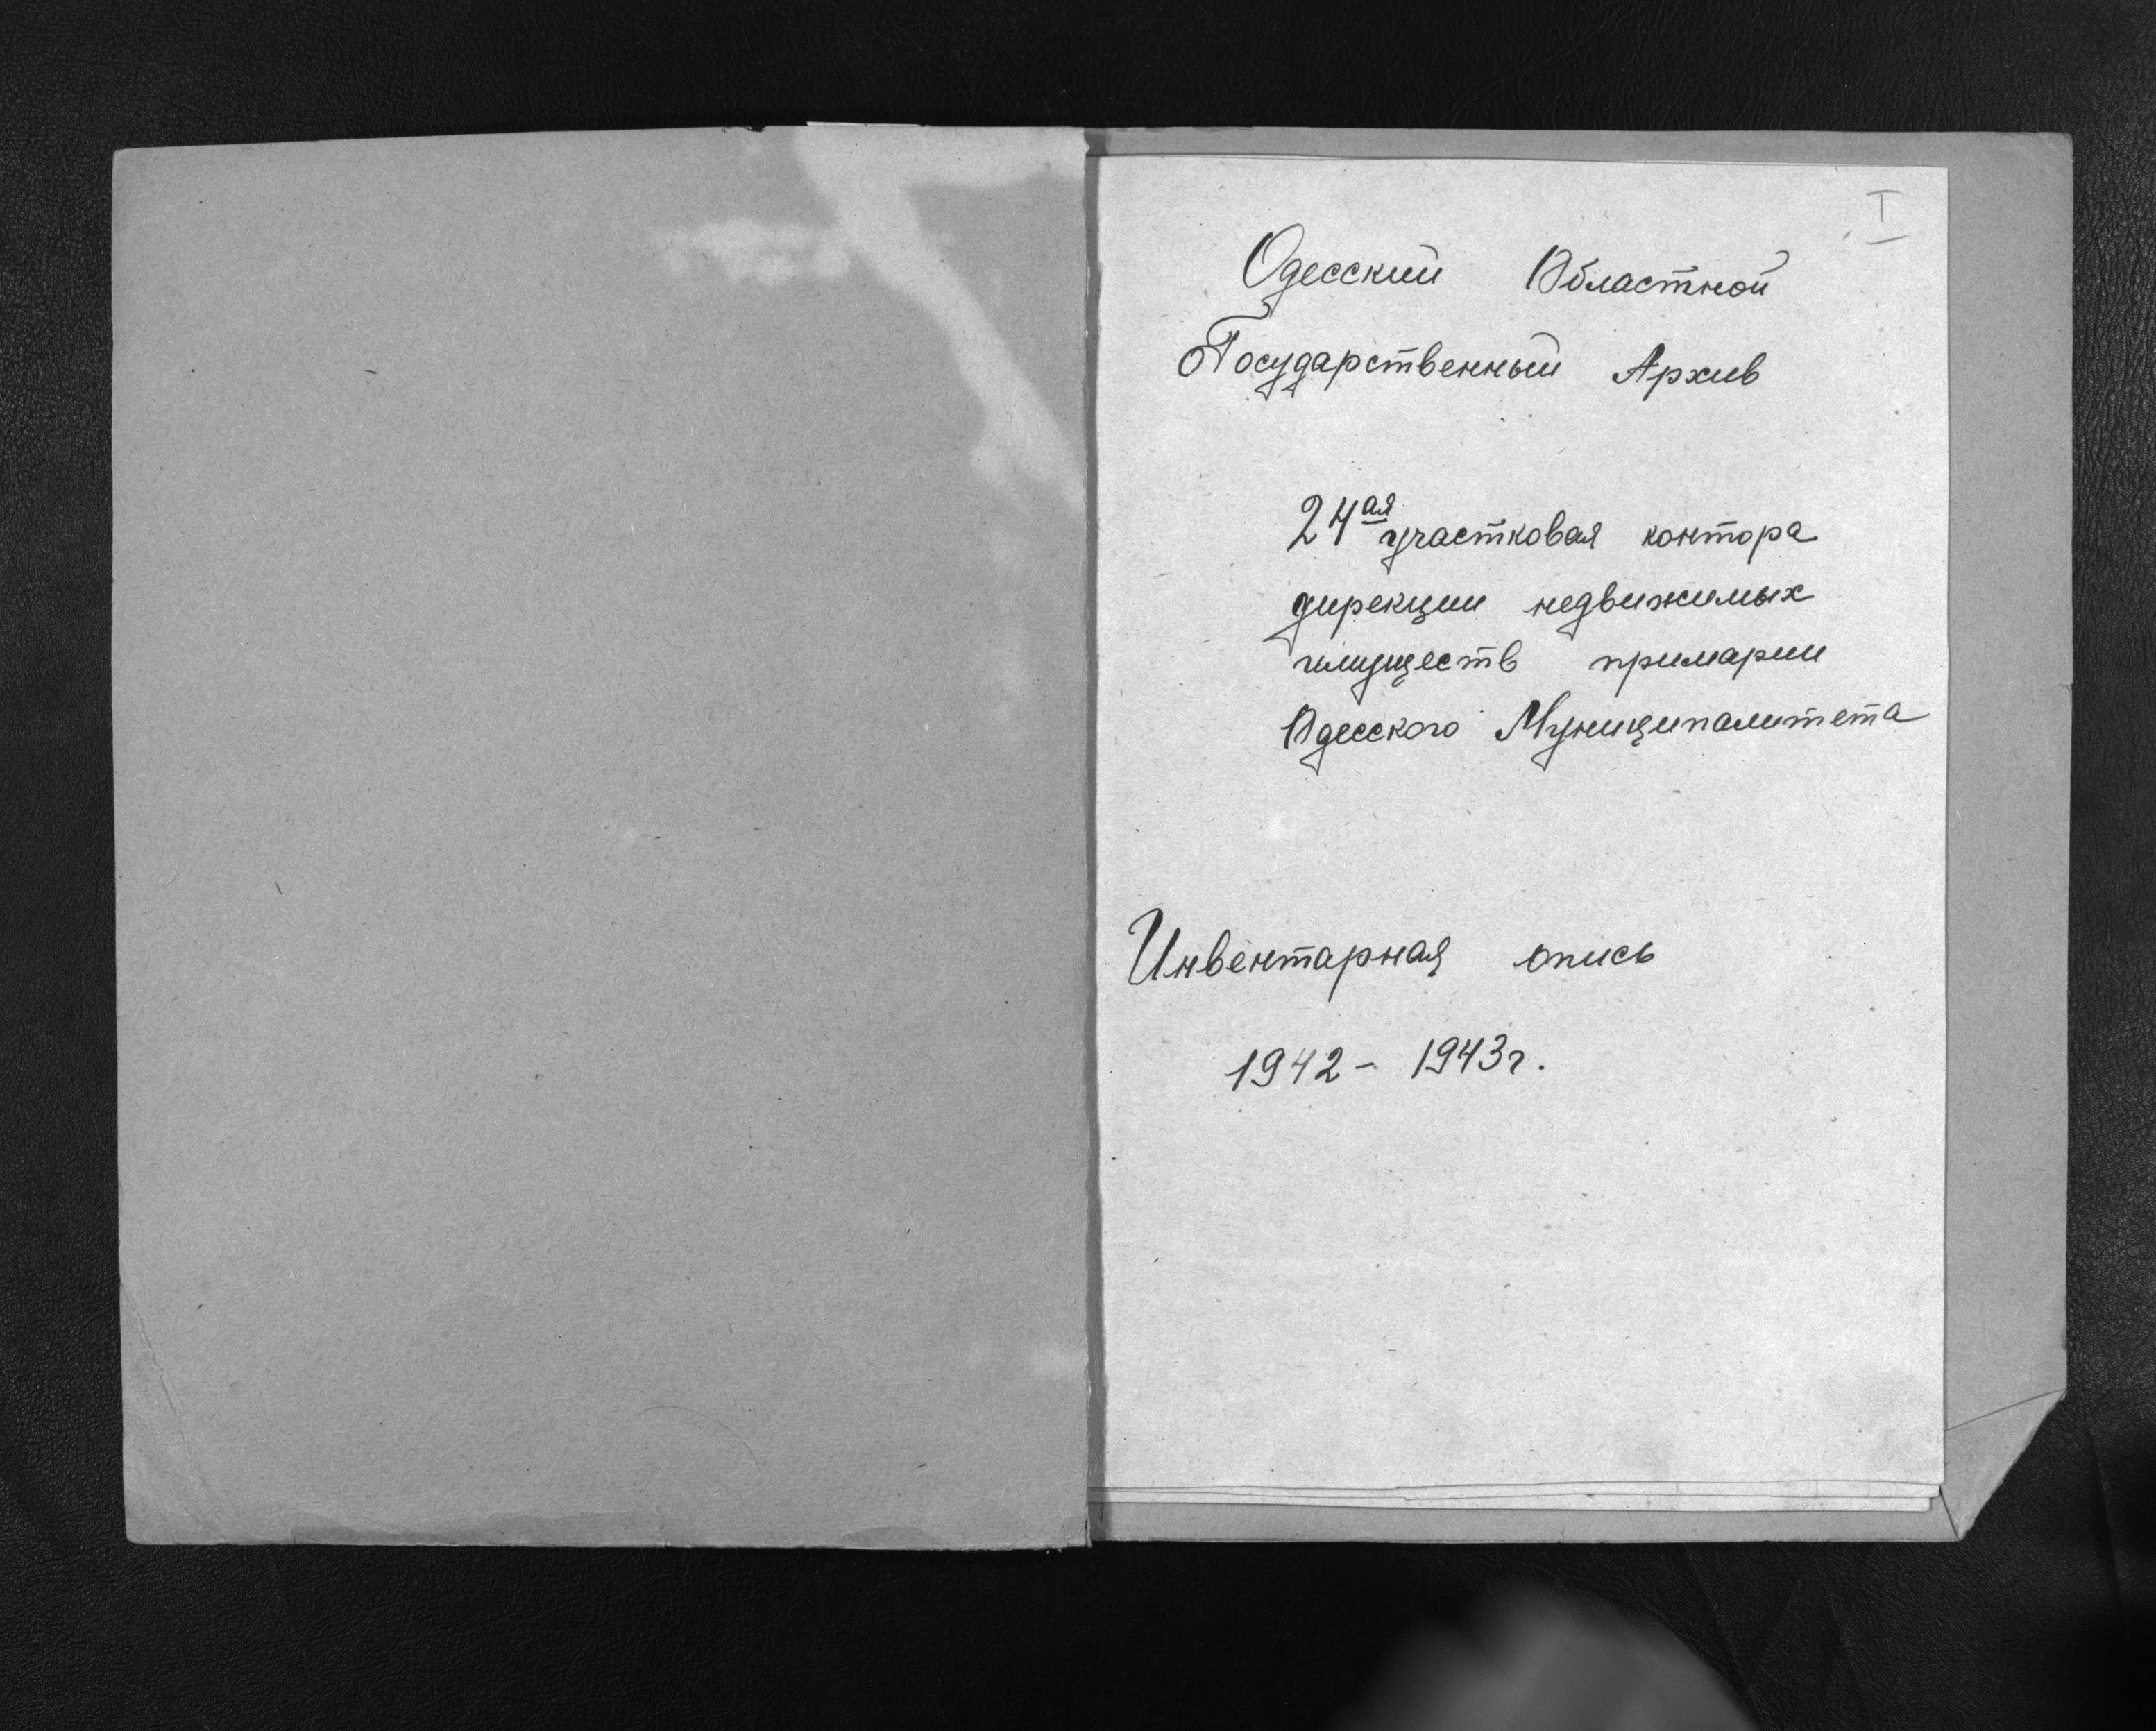 I
Одесский Областной
Государственный Архив
24ая участковая контора
дирекции недвижимых
имуществ примарии
Одесского Муниципалитета
Инвентарная опись
1942 - 1943г.